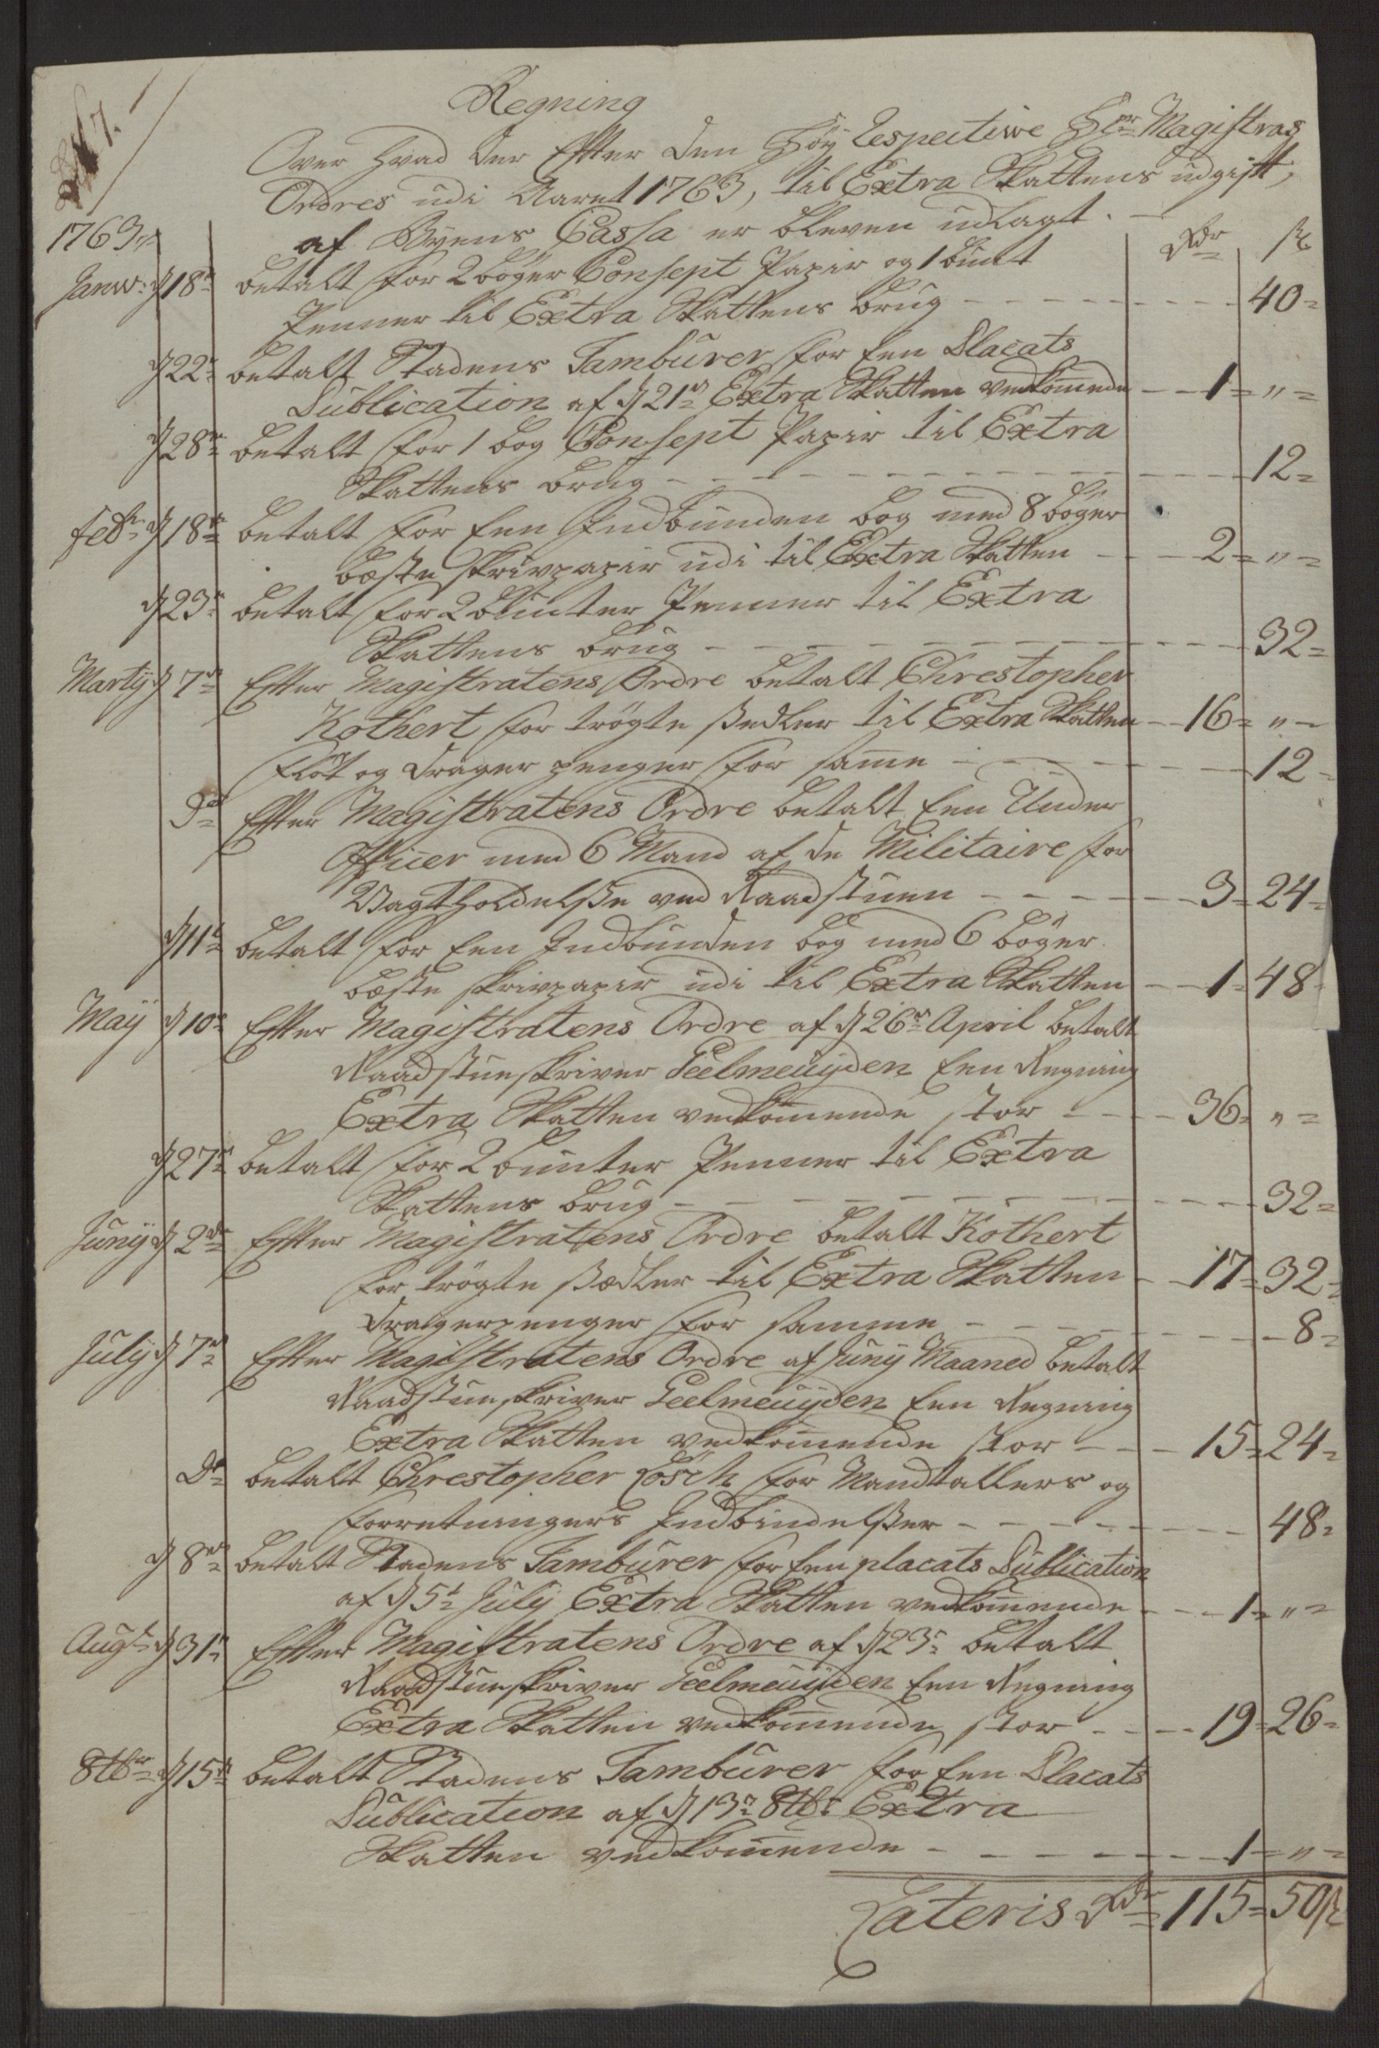 No 7.
Regning
Over hvad der Efter den Høy Respective Hrr Magistras
Ordres udi Aaret 1763, til Extra Skattens udgift,
af Byens Cassa er bleven udlagt.
1763
Rdr ß
Janv: d 18de betalt for 2 bøger Consept Papir og 1 bunt
Penner til Extra Skattens brug - - - 40=
d 22de betalt Stadens Tambürer for Een Placats
Publication af d 21de Extra Skatten vedkom̄ende - - 1= „=
d 28de betalt for 1 bog Consept Papir til Extra
Skattens brug - - - 12=
febr: d 18de betalt for Een Indbunden bog med 8 bøger
beste skrivpapir udi til Extra Skatten - - 2= „=
d 23de betalt for 2 bunter Penner til Extra
Skattens brug - - - 32=
Marty d 7de Efter Magistratens Ordre betalt Chrestopher
Kothert for trøgte Sedler til Extra Skatten - 16= „=
flöt og drager penger for sam̄e - - - 12=
Do Efter Magistratens Ordre betalt Een Under
Officer med 6 Mand af de Militaire for
Vagtholdelße ved Raadstuen - - - 3= 24=
d 11te betalt for Een Indbunden bog med 6 bøger
beste skrivpapir udi til Extra Skatten - - 1= 48=
Maÿ d 10de Efter Magistratens Ordre af d 26de April betalt
Raadstueskriver Geelmeuÿden Een Regning
Extra Skatten vedkom̄ende stor - - - 36= „=
d 27de betalt for 2 bunter Penner til Extra
Skattens brug - - - 32=
Junÿ d 2den Efter Magistratens Ordre betalt Kothert
for trøgte Sedler til Extra Skatten - 17= 32=
Dragerpenger for samme - - - 8=
July d 7de Efter Magistratens Ordre af Junÿ Maaned betalt
Raadstueskriver Geelmeuÿden Een Regning
Extra Skatten vedkom̄ende stor - - - 15= 24=
Do betalt Chrestopher Lösch for Mandtallers og
forretningers Indbindelßer - - - 48=
d 8de betalt Stadens Tambürer for Een placats Publication
af d 5te July Extra Skatten vedkom̄ende - - 1= „=
Augt: d 31te Efter Magistratens Ordre af d 23de betalt
Raadstueskriver Geelmeuÿden Een Regning
Extra Skatten vedkom̄ende stor - - - 19= 26=
8tbr d 15de betalt Stadens Tambürer for Een Placats
Publication af d 13de 8tbr Extra
Skatten vedkom̄ende - - - 1= „=
Lateris Rdr= 115= 50ß